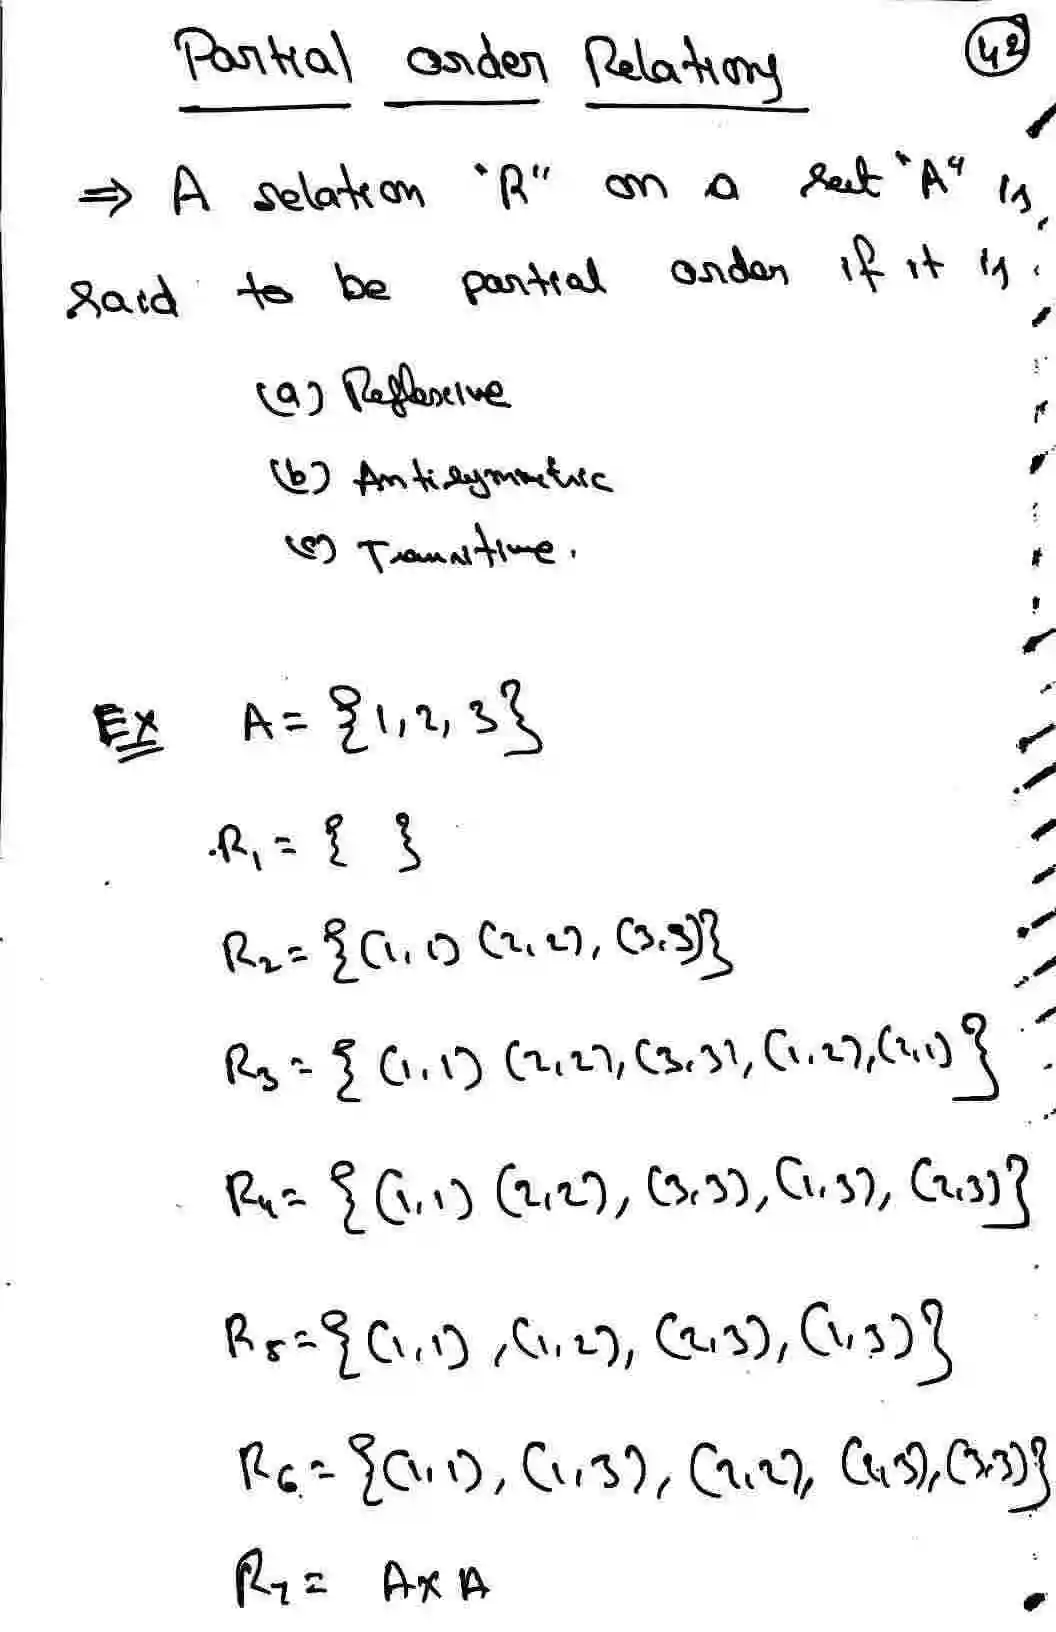 Partial order Relations
42
⇒ A relation "R" on a set "A" is
said to be partial order if it is
(a) Reflexive
(b) Antisymmetric
(c) Transitive.
Ex A = {1, 2, 3}
R₁ = { }
R₂ = {(1,1) (2,2), (3,3)}
R₃ = {(1,1) (2,2), (3,3), (1,2), (2,1)}
R₄ = {(1,1) (2,2), (3,3), (1,3), (2,3)}
R₅ = {(1,1), (1,2), (2,3), (1,3)}
R₆ = {(1,1), (1,3), (2,2), (2,3), (3,3)}
R₇ = A×A